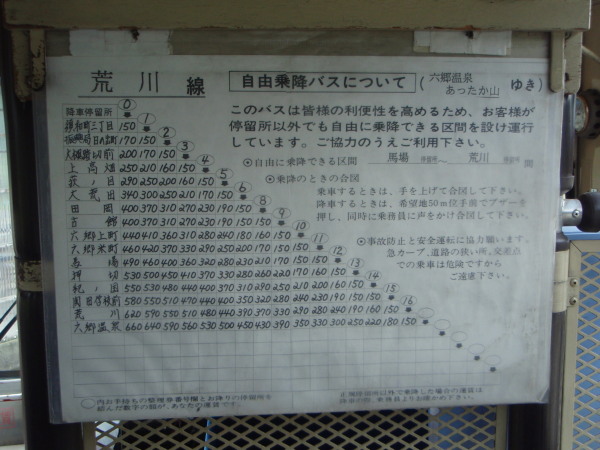 荒川線
自由乗降バスについて
(六郷温泉
あったか山 ゆき)
このバスは皆様の利便性を高めるため、お客様が
停留所以外でも自由に乗降できる区間を設け運行
しています。ご協力のうえご利用下さい。
◎自由に乗降できる区間 馬場 停留所〜 荒川 停留所 間
◎乗降のときの合図
乗車するときは、手を上げて合図して下さい。
降車するときは、希望地50m位手前でブザーを
押し、同時に乗務員に声をかけ合図して下さい。
◎事故防止と安全運転に協力願います。
急カーブ、道路の狭い所、交差点
での乗車は危険ですから
ご遠慮下さい。
降車停留所 0
150 1
170 150 2
200 170 150 3
上高畑 250 210 160 150 4
荻ノ目 290 250 200 160 150 5
340 300 250 210 170 150 6
田岡 400 370 310 270 230 190 150 8
400 370 310 270 230 190 150 150 9
六郷上町 440 410 360 310 280 240 180 160 150 10
六郷米町 460 420 370 330 290 250 200 170 150 150 11
馬場 490 460 400 360 320 280 230 210 170 150 150 12
押切 530 500 450 410 370 330 280 260 220 170 160 150 13
550 530 480 440 400 370 310 290 250 210 200 160 150 14
580 550 510 470 440 400 350 320 280 240 230 190 150 150 15
荒川 620 590 550 510 480 440 390 370 330 290 280 240 190 160 150 16
六郷温泉 660 640 590 560 530 500 450 430 390 350 330 300 250 220 180 150
内お手持ちの整理券番号欄とお降りの停留所を
結んだ数字の額が、あなたの運賃です。
正規停留所以外で乗降した場合の運賃は